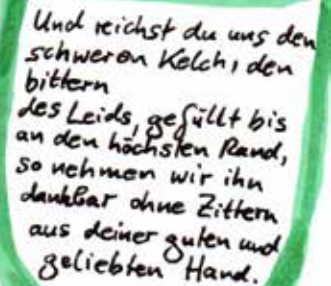 Und reichst du uns den
schweren Kelch, den
bittern
des Leids, gefüllt bis
an den höchsten Rand,
so nehmen wir ihn
dankbar ohne Zittern
aus deiner guten und
geliebten Hand.